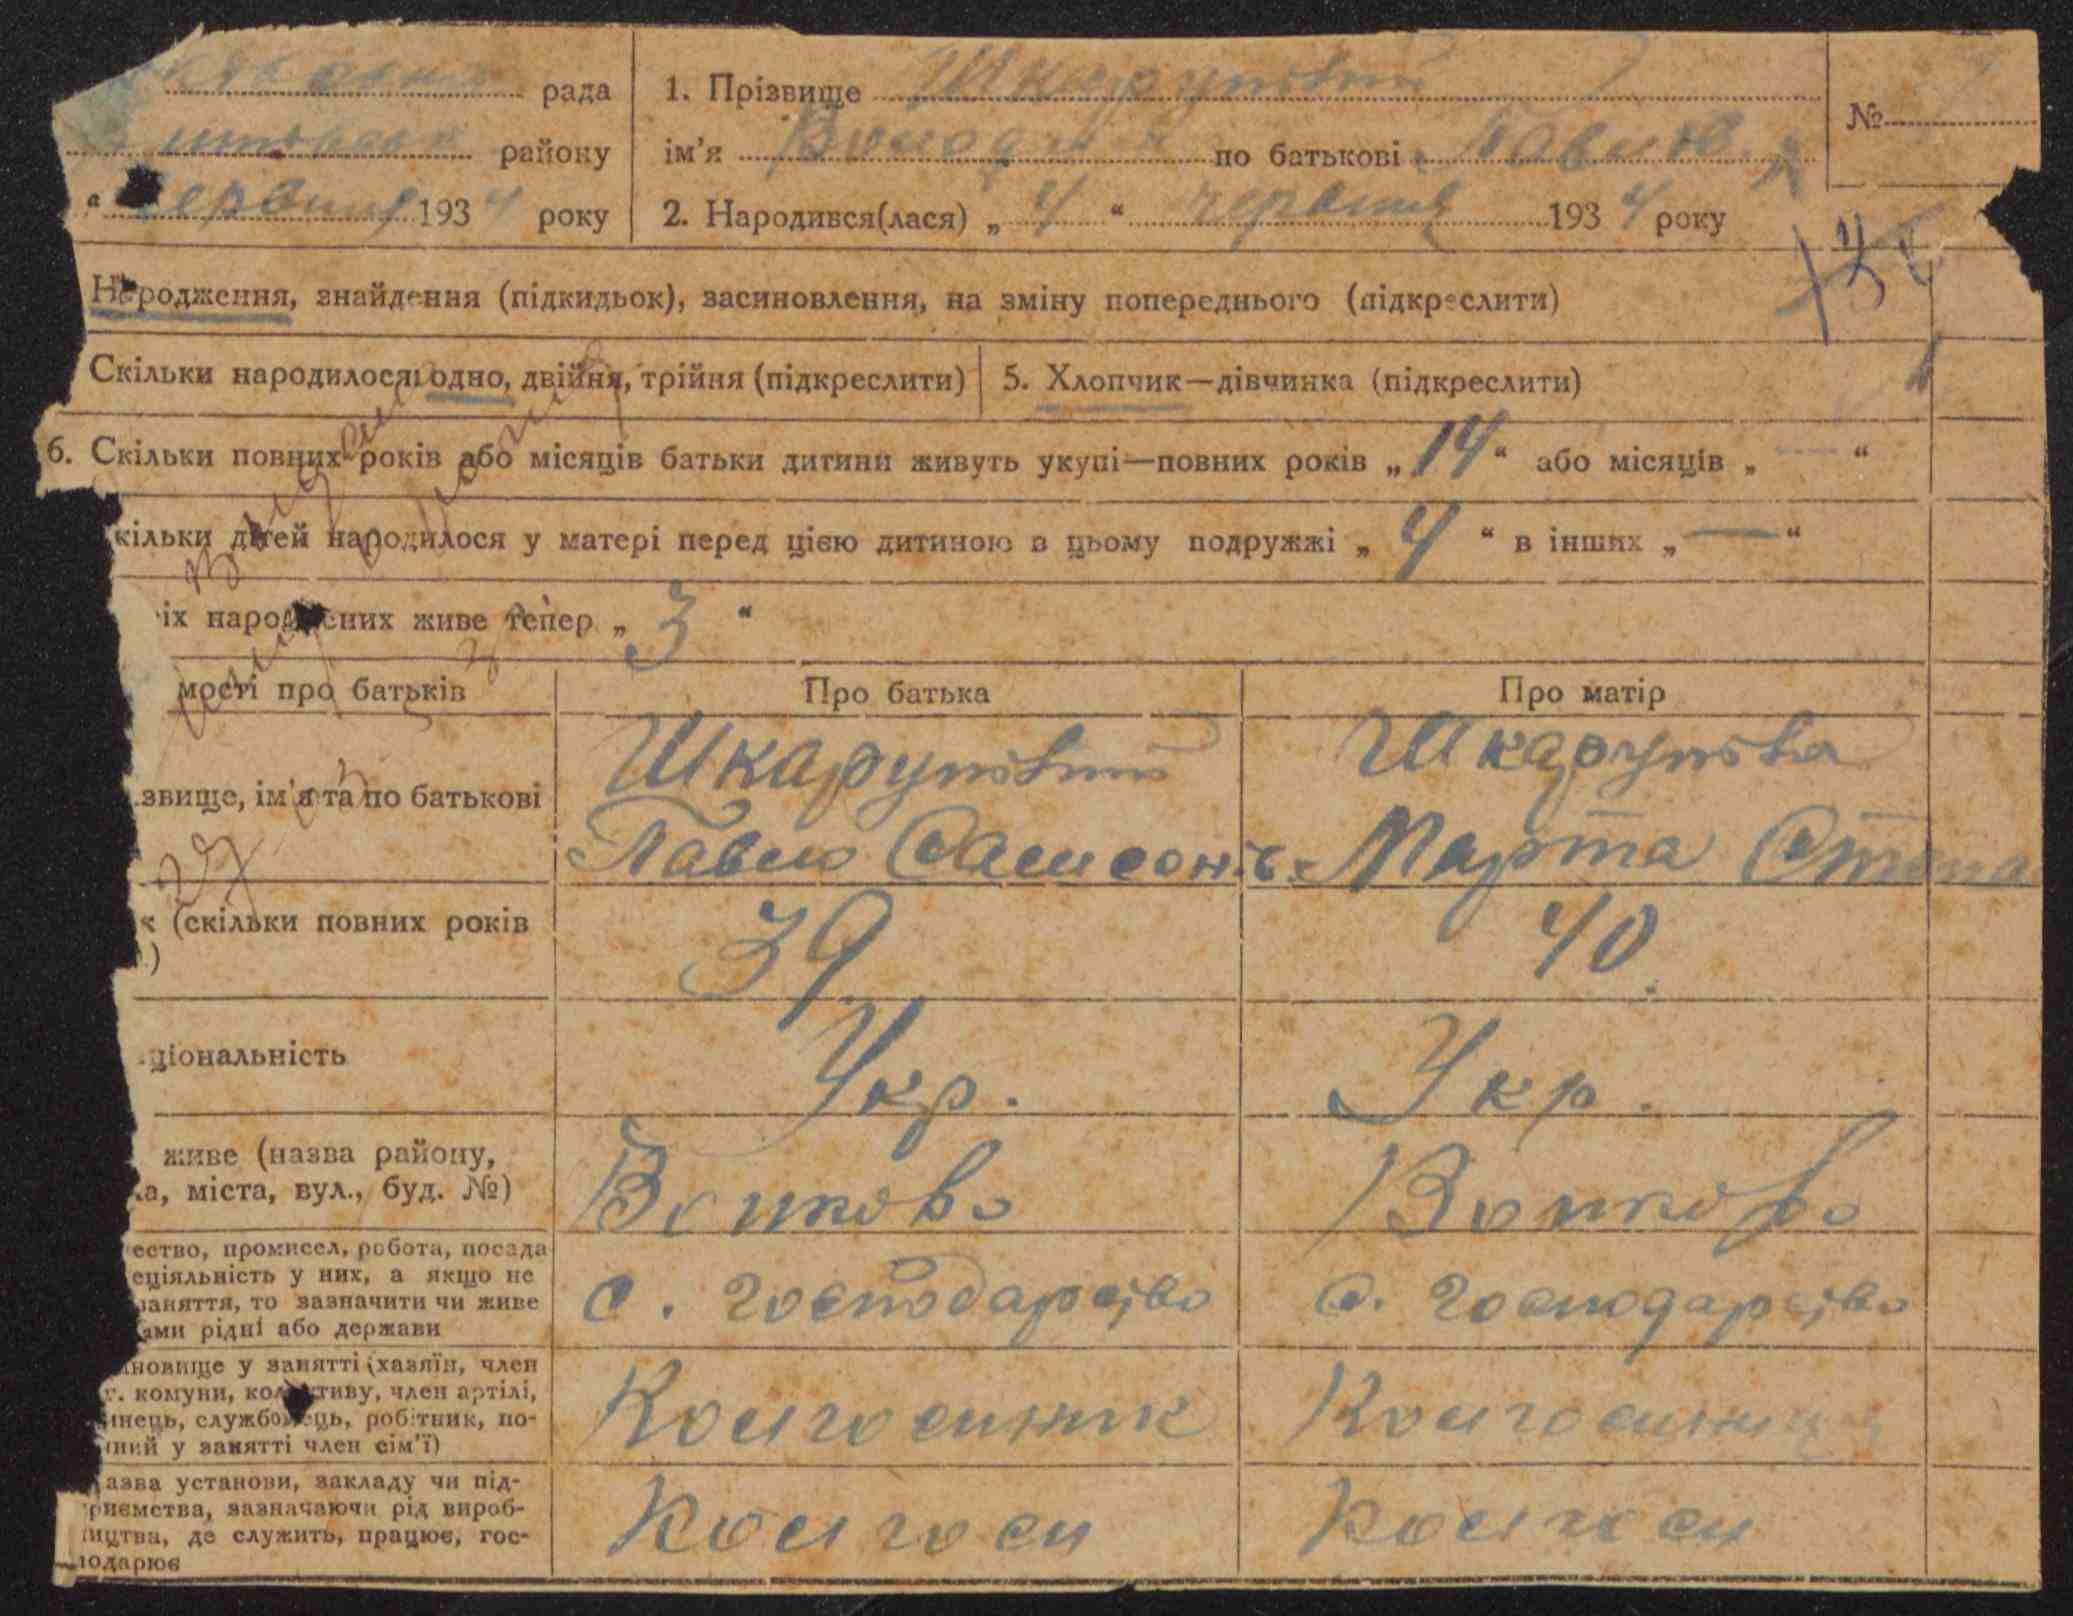 рада
району
червня 1934 року
1. Прізвище Шкарупівий
№
ім'я Володимир по батькові Павлов.
2. Народився(лася) „ 4 “ червня 1934 року
Народження, знайдення (підкидьок), засиновлення, на зміну попереднього (підкреслити)
Скільки народилося: одно, двійня, трійня (підкреслити)
5. Хлопчик—дівчинка (підкреслити)
6. Скільки повних років або місяців батьки дитини живуть укупі—повних років „ 14 “ або місяців „ — “
кільки дітей народилося у матері перед цією дитиною в цьому подружжі „ 4 “ в інших „ — “
іх народжених живе тепер „ 3 “
мості про батьків
Про батька
Про матір
звище, ім'я та по батькові
Шкарупівий
Павло Самсон.
Шкарупіва
Марта Степа
к (скільки повних років
39
40
ціональність
Укр.
Укр.
живе (назва району,
ка, міста, вул., буд. №)
Вонково
Вонково
ество, промисел, робота, посада
еціяльність у них, а якщо не
заняття, то зазначити чи живе
ами рідні або держави
с. господарство
с. господарство
новище у занятті (хазяїн, член
г. комуни, колективу, член артілі,
инець, службовець, робітник, по-
ний у занятті член сім'ї)
Колгоспник
Колгоспниця
азва установи, закладу чи під-
приємства, зазначаючи рід вироб-
ництва, де служить, працює, гос-
подарює
Колгосп
Колгосп